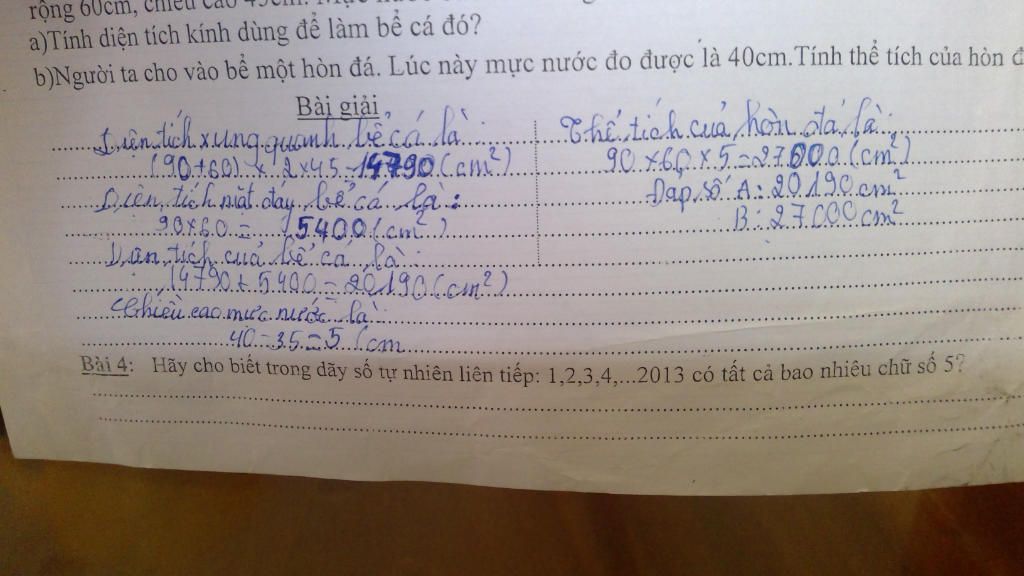 rộng 60cm, chiều cao 45cm.
a)Tính diện tích kính dùng để làm bể cá đó?
b)Người ta cho vào bể một hòn đá. Lúc này mực nước đo được là 40cm.Tính thể tích của hòn đ
Bài giải
Diện tích xung quanh bể cá là:
(90+60) x 2 x 45 = 14790 (cm²)
Diện tích mặt đáy bể cá là:
90 x 60 = 5400 (cm²)
Diện tích của bể cá là:
14790 + 5400 = 20190 (cm²)
Chiều cao mực nước là:
40 - 35 = 5 (cm
Thể tích của hòn đá là:
90 x 60 x 5 = 27000 (cm²)
Đáp số A: 20190 cm²
B: 27000 cm²
Bài 4: Hãy cho biết trong dãy số tự nhiên liên tiếp: 1,2,3,4,...2013 có tất cả bao nhiêu chữ số 5?